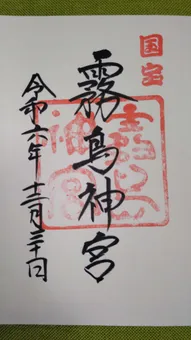 国宝
霧島神宮
令和六年十二月二十日